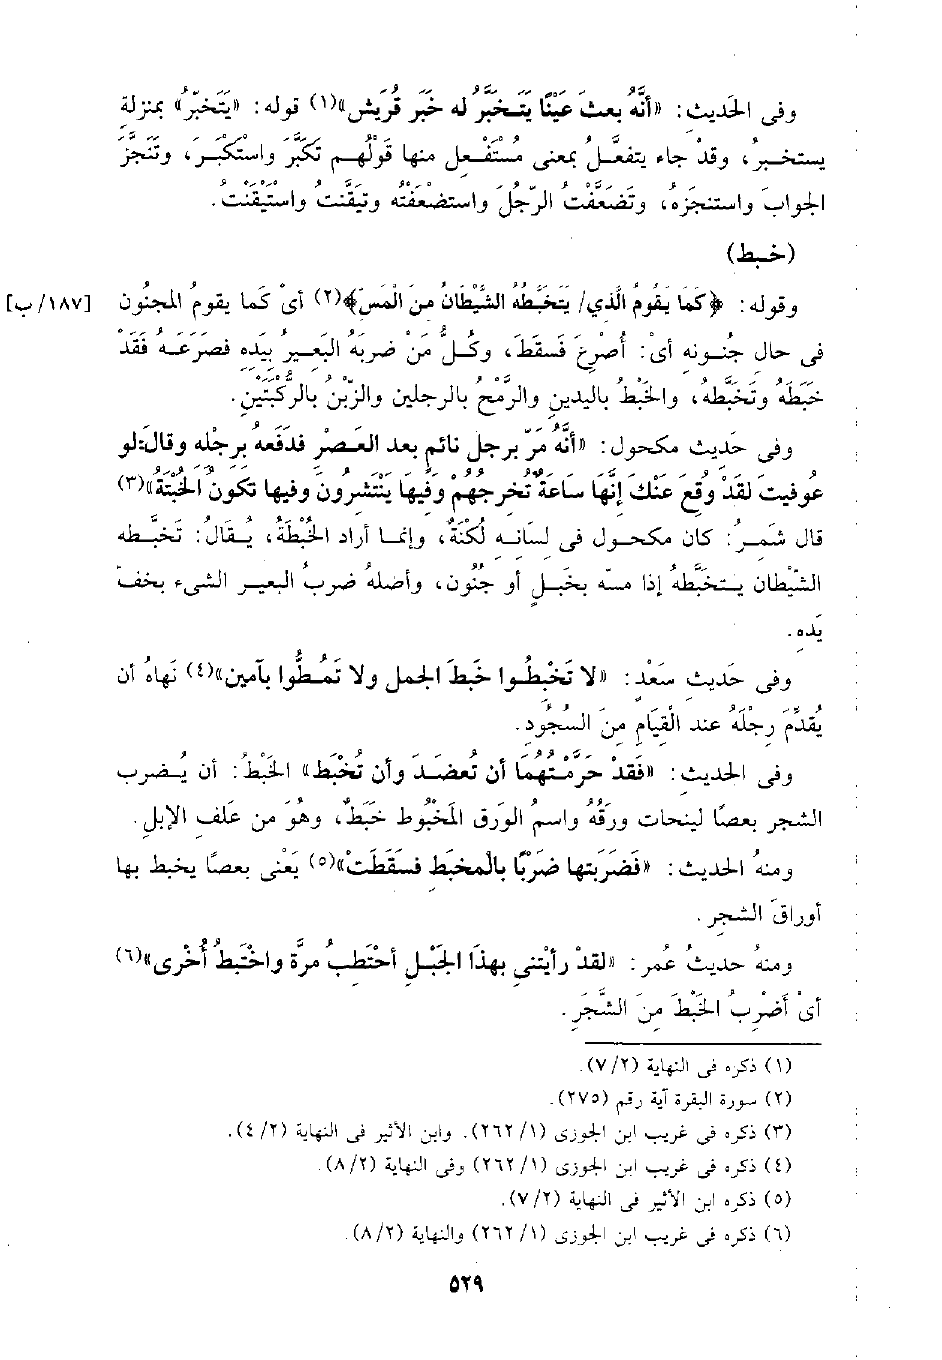 وفى الحَديث: «أنَّهُ بعث عَينًا يَتَخَبَّرُ له خَبَر قُريش»(١) قوله: «يَتَخبَّر» بمنزلةِ
يستخبرُ، وقدْ جاء يتفعَّلُ بمعنى مُسْتَفْعل منها قولُهم تَكَبَّرَ واستَكْبَر، وتَنَجَّزَ
الجوابَ واستنجزه، وتَضَعَّفْتُ الرّجُلَ واستضعَفْتُه وتيَقَّنْتُ واستَيْقَنْتُ.
(خبط)
وقوله: ﴿كَمَا يَقُومُ الَّذِي/ يَتَخَبَّطُهُ الشَّيْطَانُ مِنَ الْمَسِّ﴾(٢) أىْ كَما يقومُ المجنُون [١٨٧/ب]
فى حال جُنونه أىْ: أُصْرِعَ فَسقطَ، وكلُّ مَنْ ضربَهُ البَعيرُ بيدِه فصَرَعَهُ فَقَدْ
خَبَطَهُ وتَخَبَّطهُ، والخَبْطُ باليدينِ والرَّمْحُ بالرجلين والزّبْنُ بالرُّكْبَتَيْنِ.
وفى حَديث مكحول: «أنَّهُ مَرّ برجلٍ نائمٍ بعد العَصْرِ فدفَعهُ برجْله وقالَ:لو
عُوفيتَ لقَدْ وقِعَ عَنْكَ إنَّها ساعَةُ تخرجُهُمْ وَفيها يَنْتشرونَ وفيها تكونُ الخَبْتَةُ»(٣)
قال شَمِرُ: كان مكحول فى لسَانِه لُكْنَةٌ، وإنما أراد الخَبْطَةُ، يقالُ: تَخبَّطه
الشّيْطان يتخبَّطهُ إذا مسّه بخَبلٍ أو جُنُون، وأصلهُ ضربُ البعير الشىء بخفّ
يَدِه.
وفى حَديث سَعْد: «لا تَخْبِطُوا خَبطَ الجمل ولا تَمُطُّوا بآمين»(٤) نَهاهُ أن
يُقدِّمَ رِجْلَهُ عند الْقِيَامِ منَ السُجُود.
وفى الحديث: «فَقَدْ حَرَّمْتُهُما أن تُعضَدَ وأن تُخْبَط» الخَبْطُ: أن يُضرب
الشجر بعصًا لينحات ورَقُهُ واسمُ الوَرق المَخْبُوط خَبَطٌ، وهُوَ من عَلَف الإبلِ.
ومنهُ الحديث: «فَضَرَبَتها ضَرْبًا بالْمخبَطِ فسَقَطَتْ»(٥) يَعْنى بعصًا يخبط بها
أوراقَ الشجر.
ومنهُ حديث عُمر: «لقدْ رأيْتنى بهذَا الجَبْلِ أحتَطبُ مرَّة واخْتَبطُ أُخْرى»(٦)
أىْ أضْرِبُ الخَبْطَ مِنَ الشَّجَرِ.
(١) ذكره فى النهاية (٧/٢).
(٢) سورة البقرة آية رقم (٢٧٥).
(٣) ذكره فى غريب ابن الجوزى (٢٦٢/١). وابن الأثير فى النهاية (٤/٢).
(٤) ذكره فى غريب ابن الجوزى (٢٦٢/١) وفى النهاية (٨/٢).
(٥) ذكره ابن الأثير فى النهاية (٧/٢).
(٦) ذكره فى غريب ابن الجوزى (٢٦٢/١) والنهاية (٨/٢).
٥٢٩